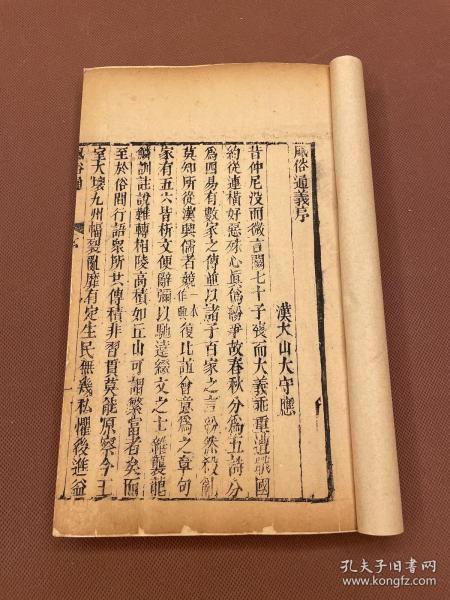 風俗通義序
漢太山太守應
昔仲尼没而微言闕七十子喪而大義乖重遭戰國
約從連橫好惡殊心眞僞紛爭故春秋分爲五詩分
爲四易有數家之傳並以諸子百家之言紛然殽亂
莫知所從漢興儒者競復比誼會意爲之章句
一本作典
家有五六皆析文便辭彌以馳遠綴文之士雜襲龍
鱗訓註說難轉相陵高積如丘山可謂繁富者矣而
至於俗間行語衆所共傳積非習貫莫能原察今王
室大壞九州幅裂亂靡有定生民無幾私懼後進益
風俗通
序
孔夫子旧书网
www.kongfz.com